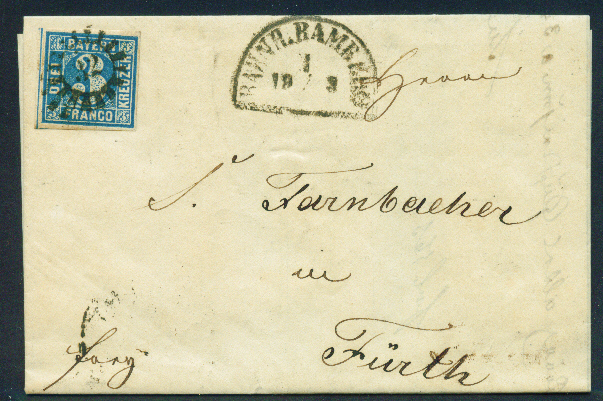 BAYERN
DREI
3
KREUZER
FRANCO
BAHNH. BAMBERG
1
19 3
Herrn
S. Farnbacher
in
Fürth